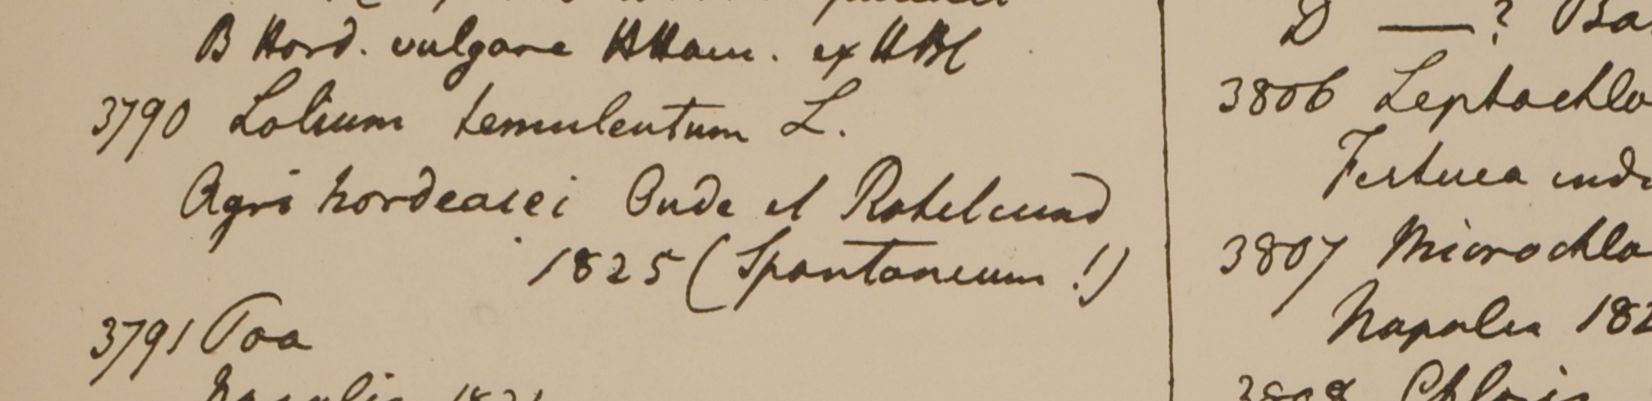 B Hord. vulgare HHam. ex HBC
3790 Lolium temulentum L.
Agri hordeacei Oude et Rohelcund
1825 (Spontaneum !)
3791 Poa
Napalia 1821
D — ? Ba
3806 Leptochlo
Festuca indi
3807 Microchlo
Napalia 182
3808 Chloris